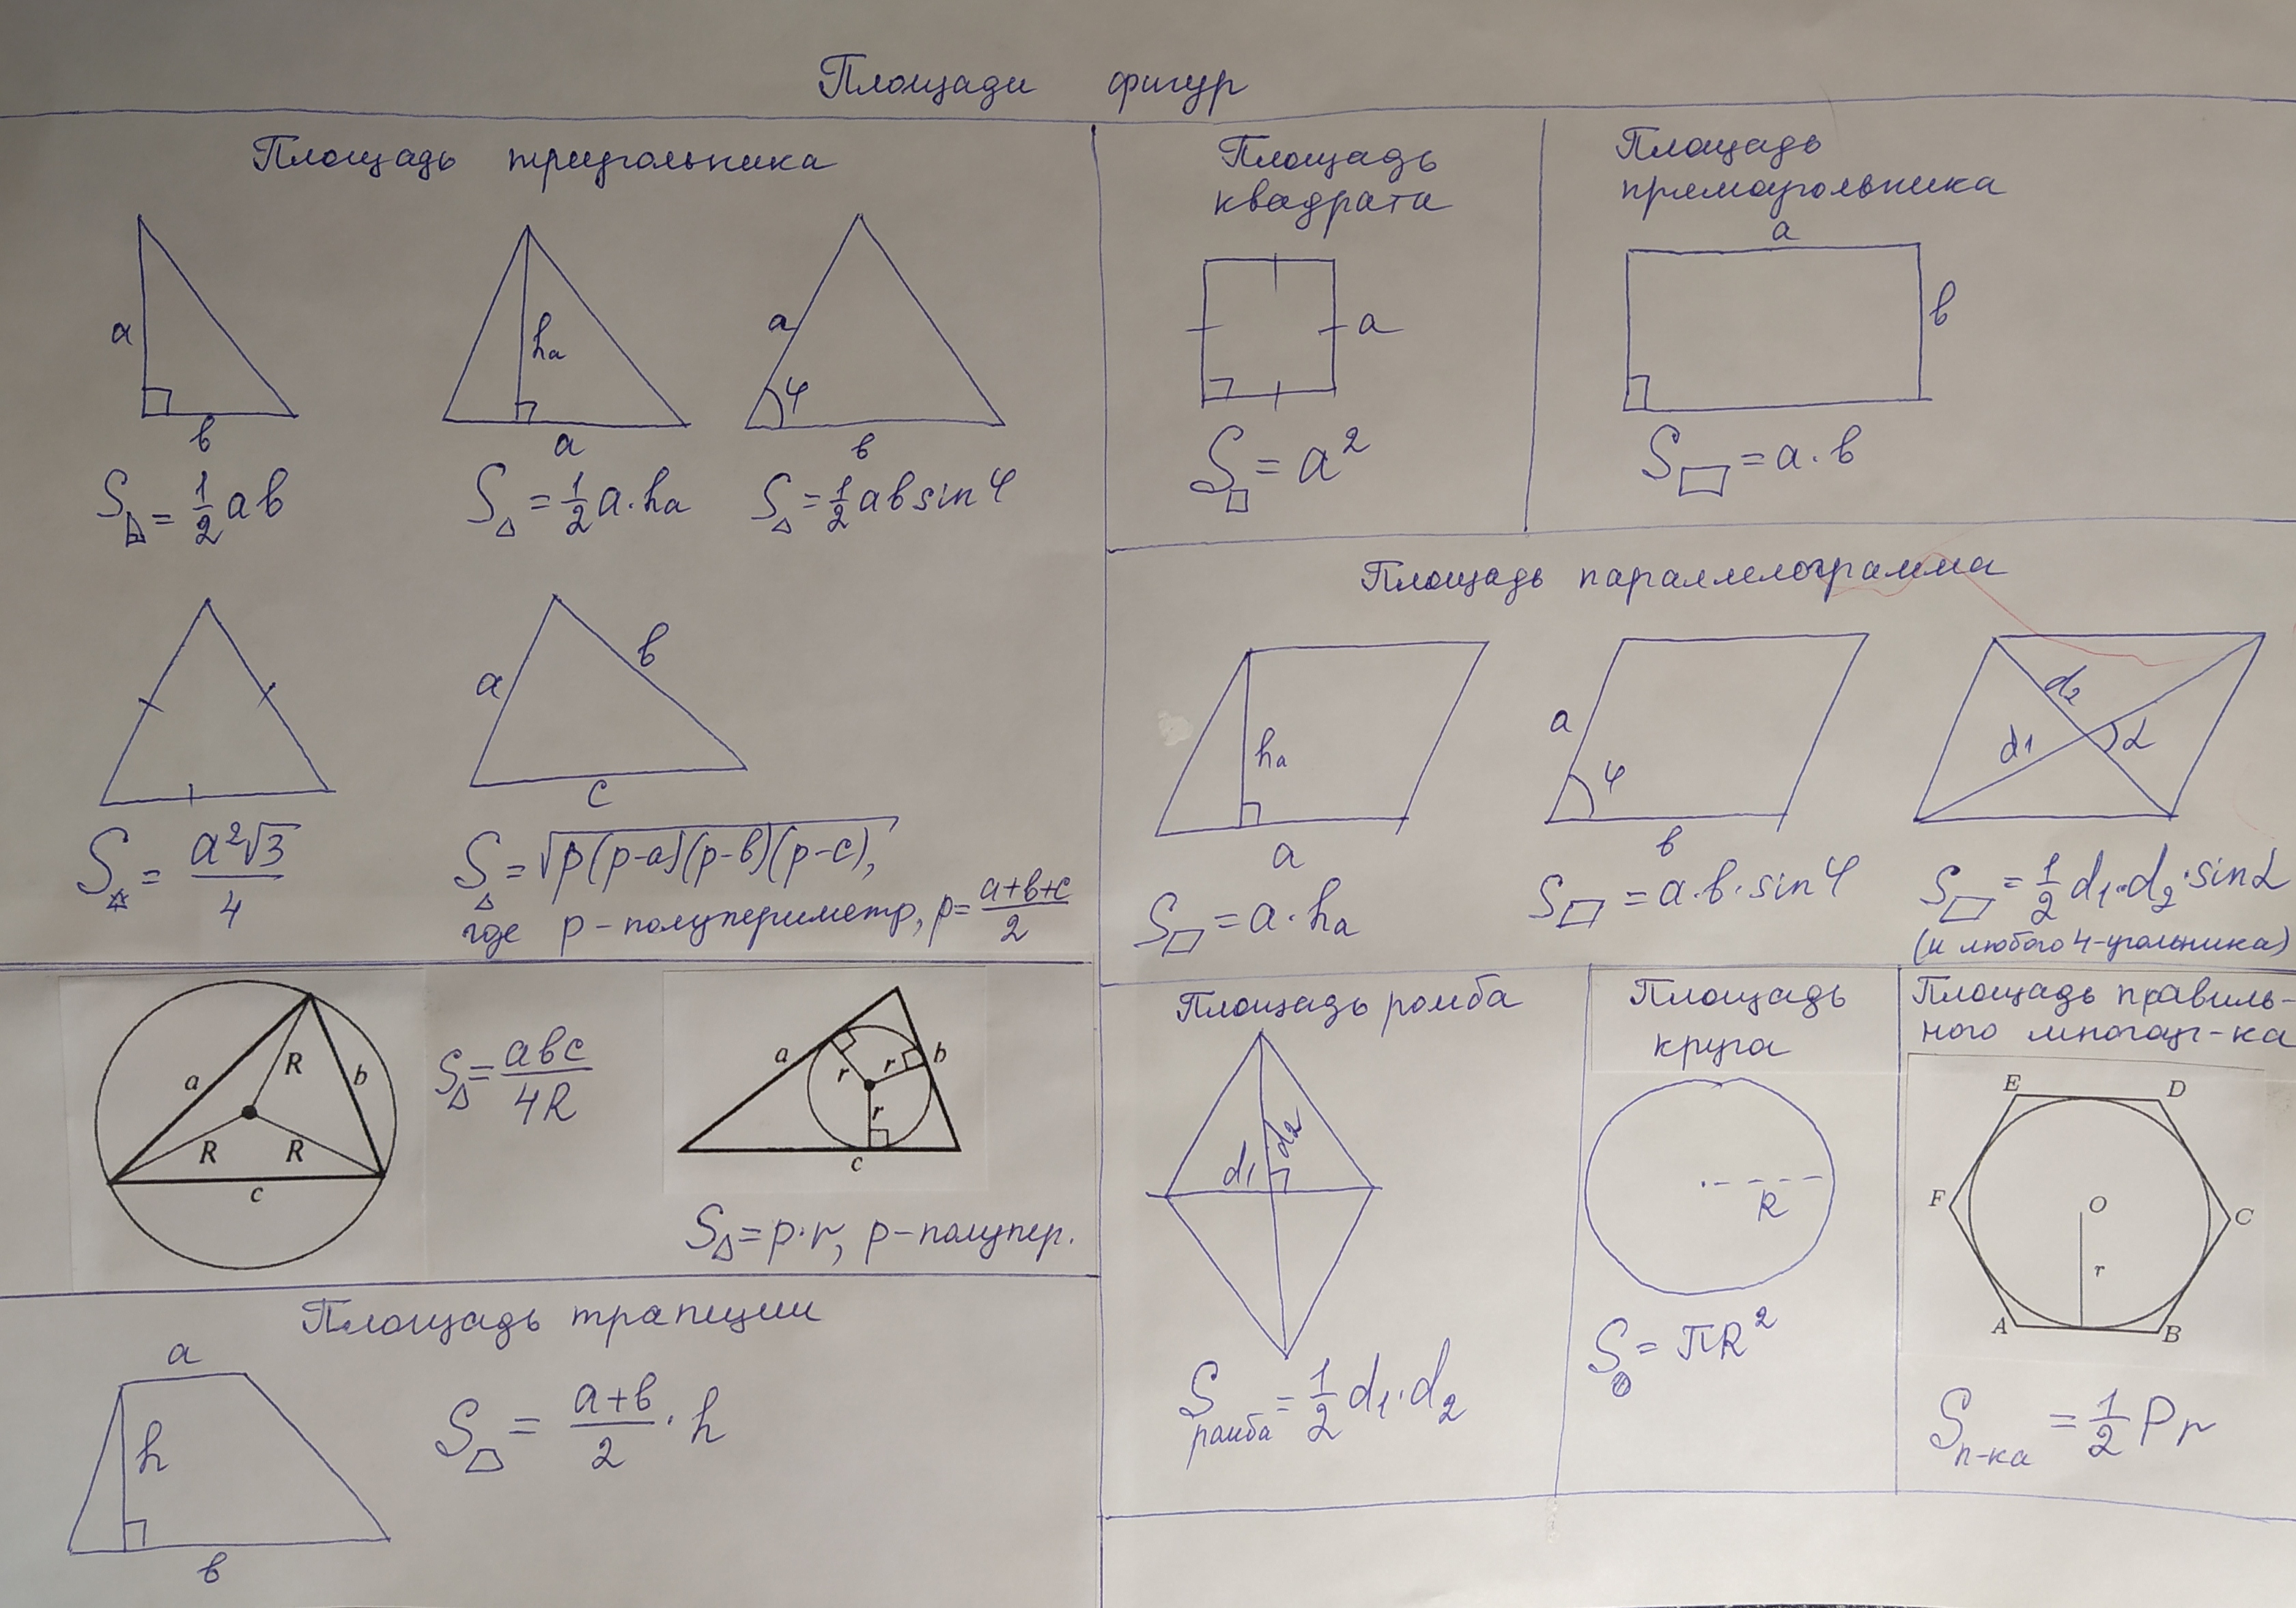 Площади фигур
Площадь треугольника
a
в
S = 1/2 aв
hₐ
a
S = 1/2 a·hₐ
a
φ
в
S = 1/2 aв sin φ
S = a²√3/4
a
в
c
S = √p(p-a)(p-в)(p-c),
где p - полупериметр, p = a+в+c/2
a
R
b
R
R
c
S = aвc/4R
a
r
r
b
r
c
S = p·r, p - полупер.
Площадь трапеции
a
h
в
S = a+в/2 · h
Площадь
квадрата
a
S = a²
Площадь
прямоугольника
a
в
S = a·в
Площадь параллелограмма
hₐ
a
S = a·hₐ
a
φ
в
S = a·в·sin φ
d₂
d₁
α
S = 1/2 d₁·d₂·sin α
(и любого 4-угольника)
Площадь ромба
d₂
d₁
S ромба = 1/2 d₁·d₂
Площадь
круга
R
S = πR²
Площадь правиль-
ного многоуг-ка
E
D
F
O
C
r
A
B
S п-ка = 1/2 Pr